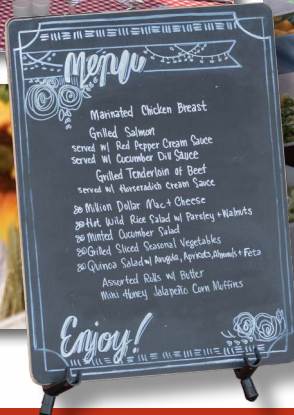 Menu
Marinated Chicken Breast
Grilled Salmon
served w/ Red Pepper Cream Sauce
served w/ Cucumber Dill Sauce
Grilled Tenderloin of Beef
served w/ Horseradish Cream Sauce
Million Dollar Mac + Cheese
Hot Wild Rice Salad w/ Parsley + Walnuts
Minted Cucumber Salad
Grilled Sliced Seasonal Vegetables
Quinoa Salad w/ Arugula, Apricots, Almonds + Feta
Assorted Rolls w/ Butter
Mini Honey Jalapeño Corn Muffins
Enjoy!